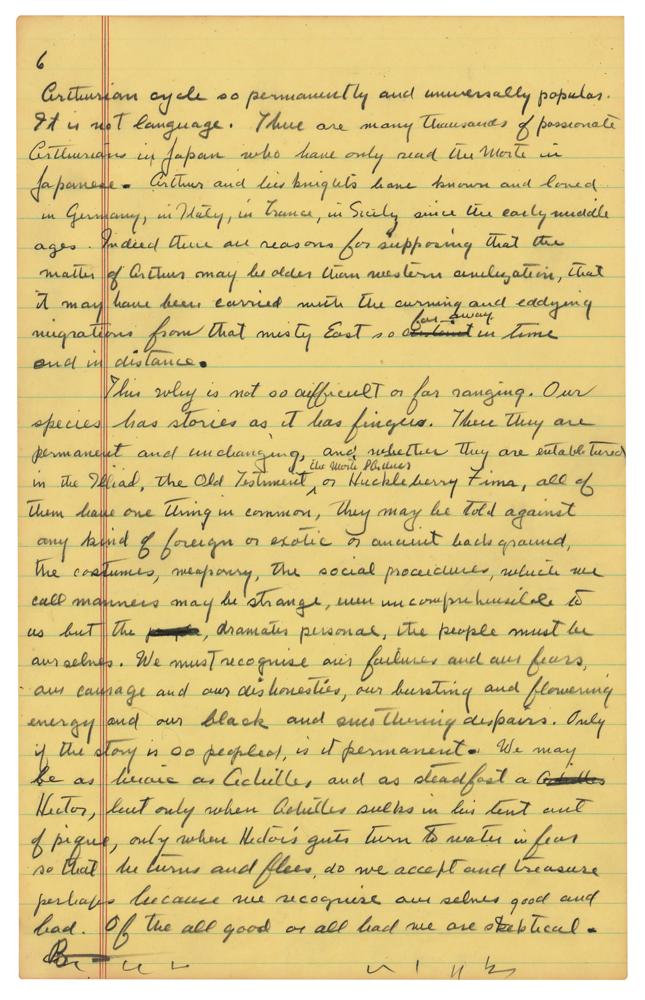 6
Arthurian cycle so permanently and universally popular.
It is not language. There are many thousands of passionate
Arthurians in Japan who have only read the Morte in
Japanese. Arthur and his knights have known and loved
in Germany, in Italy, in France, in Sicily since the early middle
ages. Indeed there are reasons for supposing that the
matter of Arthur may be older than western civilization, that
it may have been carried with the curning and eddying
far-away
migrations from that misty East so distant in time
and in distance.
This why is not so difficult or far ranging. Our
species has stories as it has fingers. There they are
permanent and unchanging, and whether they are entabletured
the Morte d'Arthur
in the Illiad, the Old Testment, or Huckleberry Finn, all of
them have one thing in common, they may be told against
any kind of foreign or exotic or ancient back ground,
the costumes, weaponry, the social procedures, which we
call manners may be strange, even uncomprehensible to
us but the people, dramates personal, the people must be
our selves. We must recognise our failures and our fears,
our courage and our dishonesties, our bursting and flowering
energy and our black and smothering despairs. Only
if the story is so peopled, is it permanent. We may
be as heroic as Achilles, and as steadfast a Achilles
Hector, but only when Achilles sulks in his tent out
of pique, only when Hector's guts turn to water in fear
so that he turns and flees, do we accept and treasure
perhaps because we recognise our selves good and
bad. Of the all good or all bad we are skeptical.